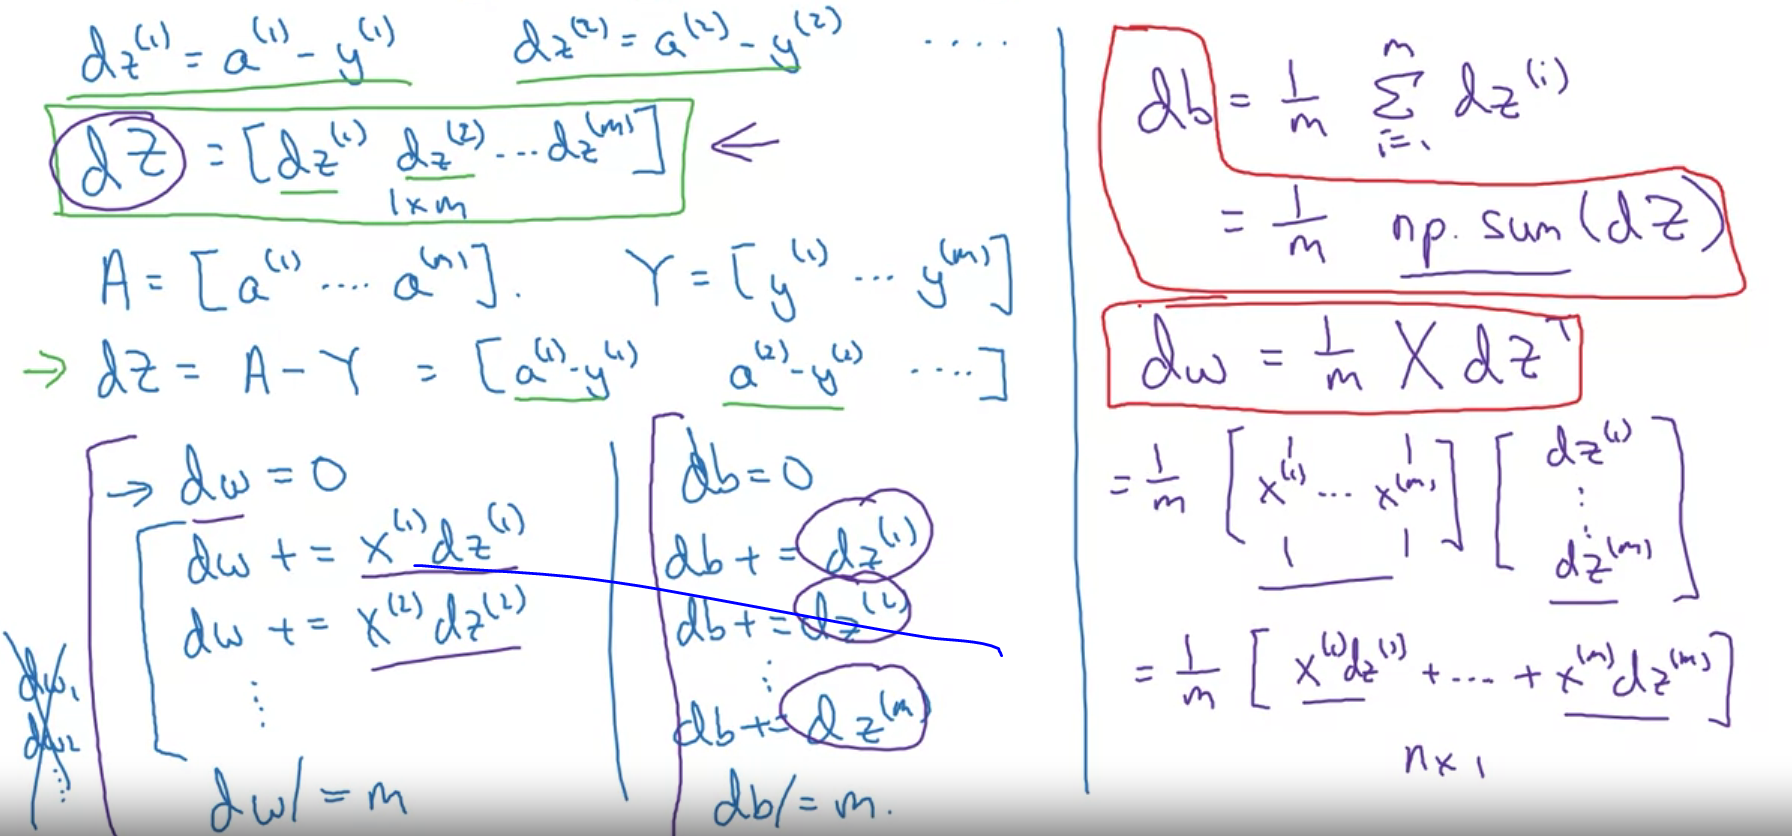 dz⁽¹⁾ = a⁽¹⁾ - y⁽¹⁾ dz⁽²⁾ = a⁽²⁾ - y⁽²⁾ ....
dZ = [dz⁽¹⁾ dz⁽²⁾ ... dz⁽ᵐ⁾] ←
1×m
A = [a⁽¹⁾ .... a⁽ᵐ⁾]. Y = [y⁽¹⁾ ... y⁽ᵐ⁾]
→ dZ = A - Y = [a⁽¹⁾-y⁽¹⁾ a⁽²⁾-y⁽²⁾ ....]
→ dw = 0
dw += x⁽¹⁾dz⁽¹⁾
dw += x⁽²⁾dz⁽²⁾
⋮
dw /= m
dw₁
dw₂
⋮
db = 0
db += dz⁽¹⁾
db += dz⁽²⁾
⋮
db += dz⁽ᵐ⁾
db /= m.
db = 1/m Σᵢ₌₁ᵐ dz⁽ⁱ⁾
= 1/m np.sum(dZ)
dw = 1/m X dZᵀ
= 1/m [x⁽¹⁾ ... x⁽ᵐ⁾] [dz⁽¹⁾ ⋮ dz⁽ᵐ⁾]
= 1/m [x⁽¹⁾dz⁽¹⁾ + .... + x⁽ᵐ⁾dz⁽ᵐ⁾]
n×1